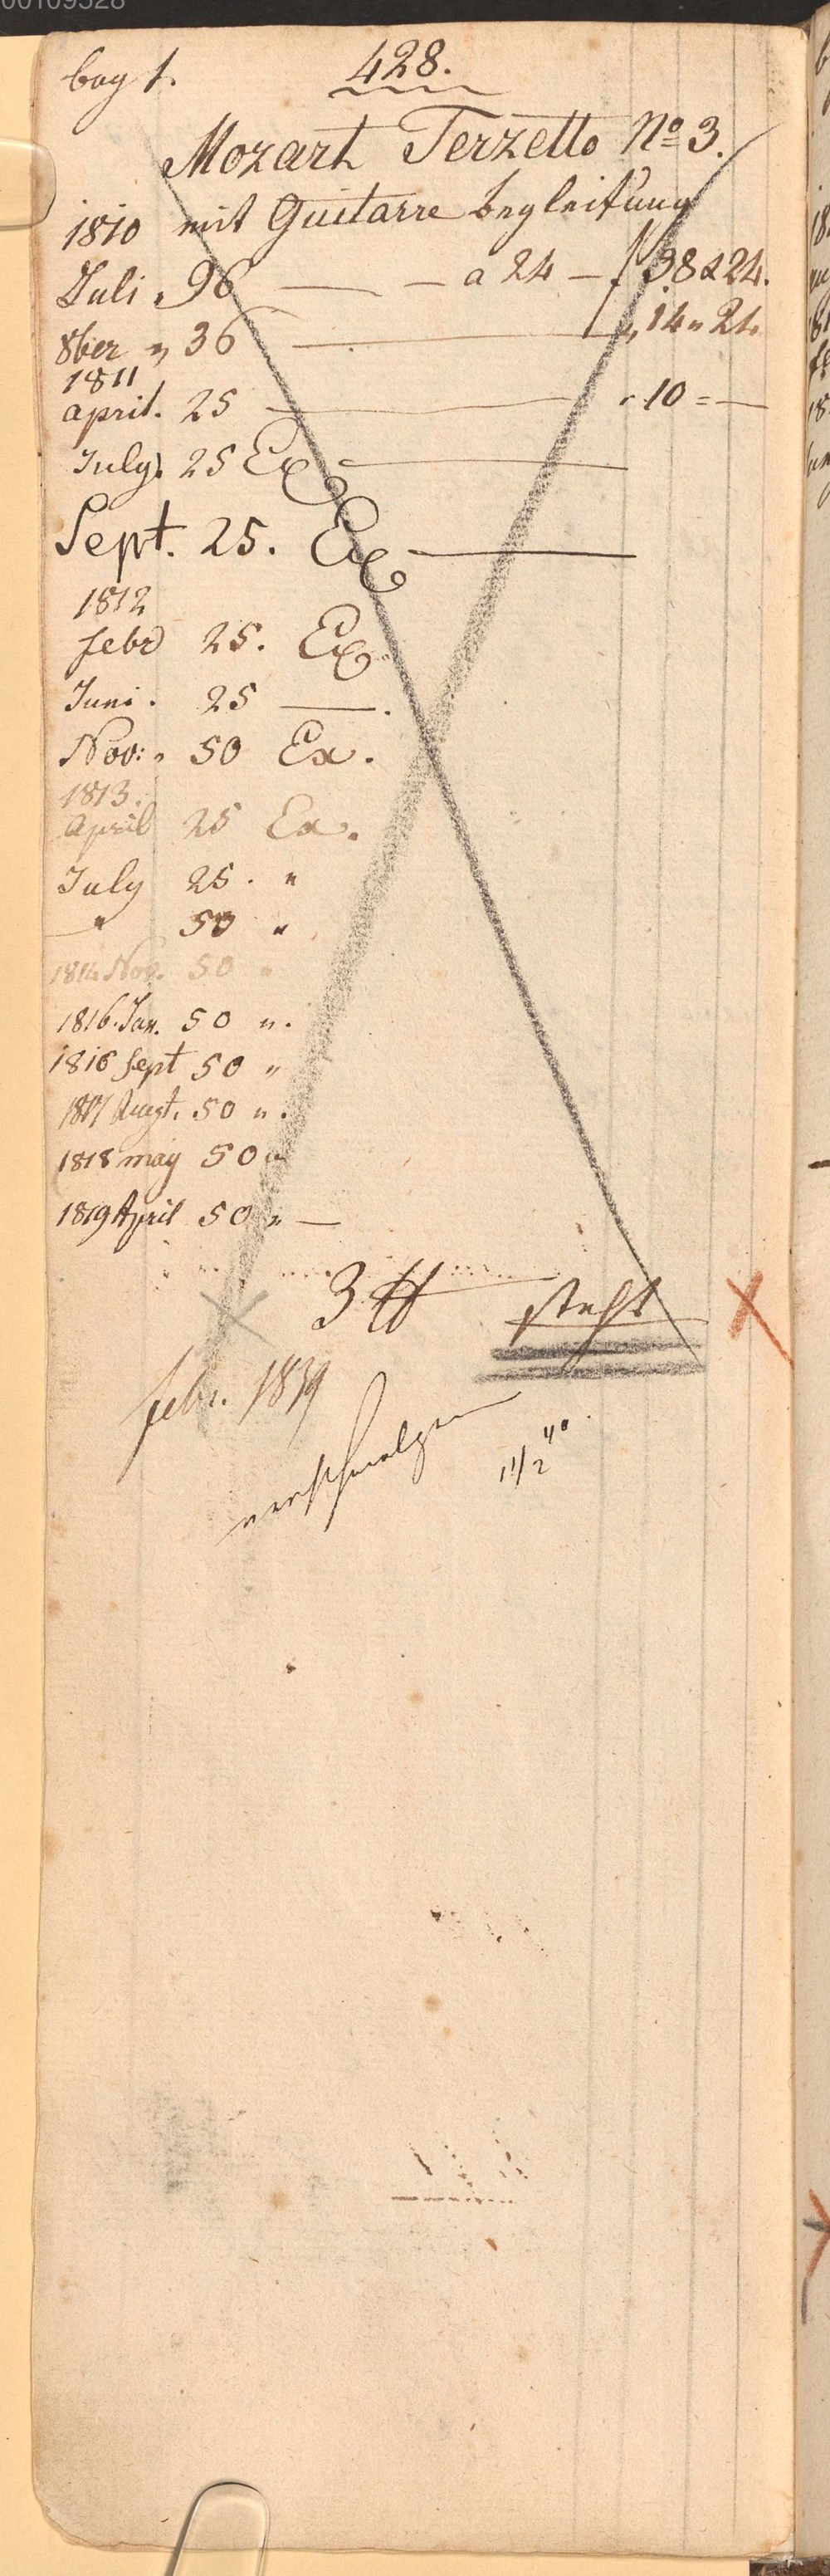 bog 1. 428.
Mozart Terzetto No 3.
1810 mit Guitarre begleitung
Juli „ 96 — — a 24 — f 38 x 24.
8ber „ 36 — „ 14 „ 24
1811
april. 25 — „ 10 = —
July. 25 Ex —
Sept. 25. Ex —
1812
febr 25. Ex
Juni. 25 — .
Nov: „ 50 Ex.
1813.
April 25 Ex.
July 25. "
— " 50 "
1814 Nov. 50 "
1816. Jan. 50 ".
1816 Sept 50 "
1817 Augt. 50 ".
1818 may 50 "
1819 April 50 " —
3 steht
febr. 1839
verschmolzen
11/2